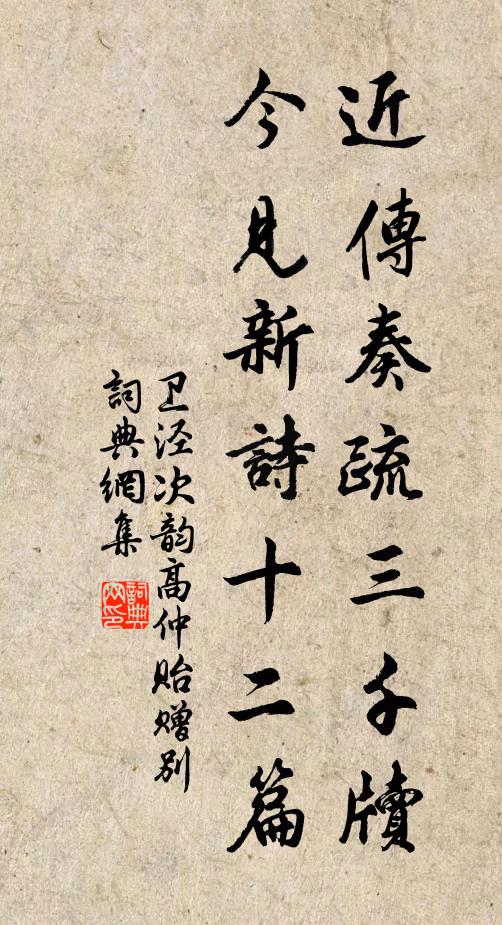 近傳奏疏三千牘
今見新詩十二篇
卫泾次韵高仲貽赠别
詞典網集
詞典網印